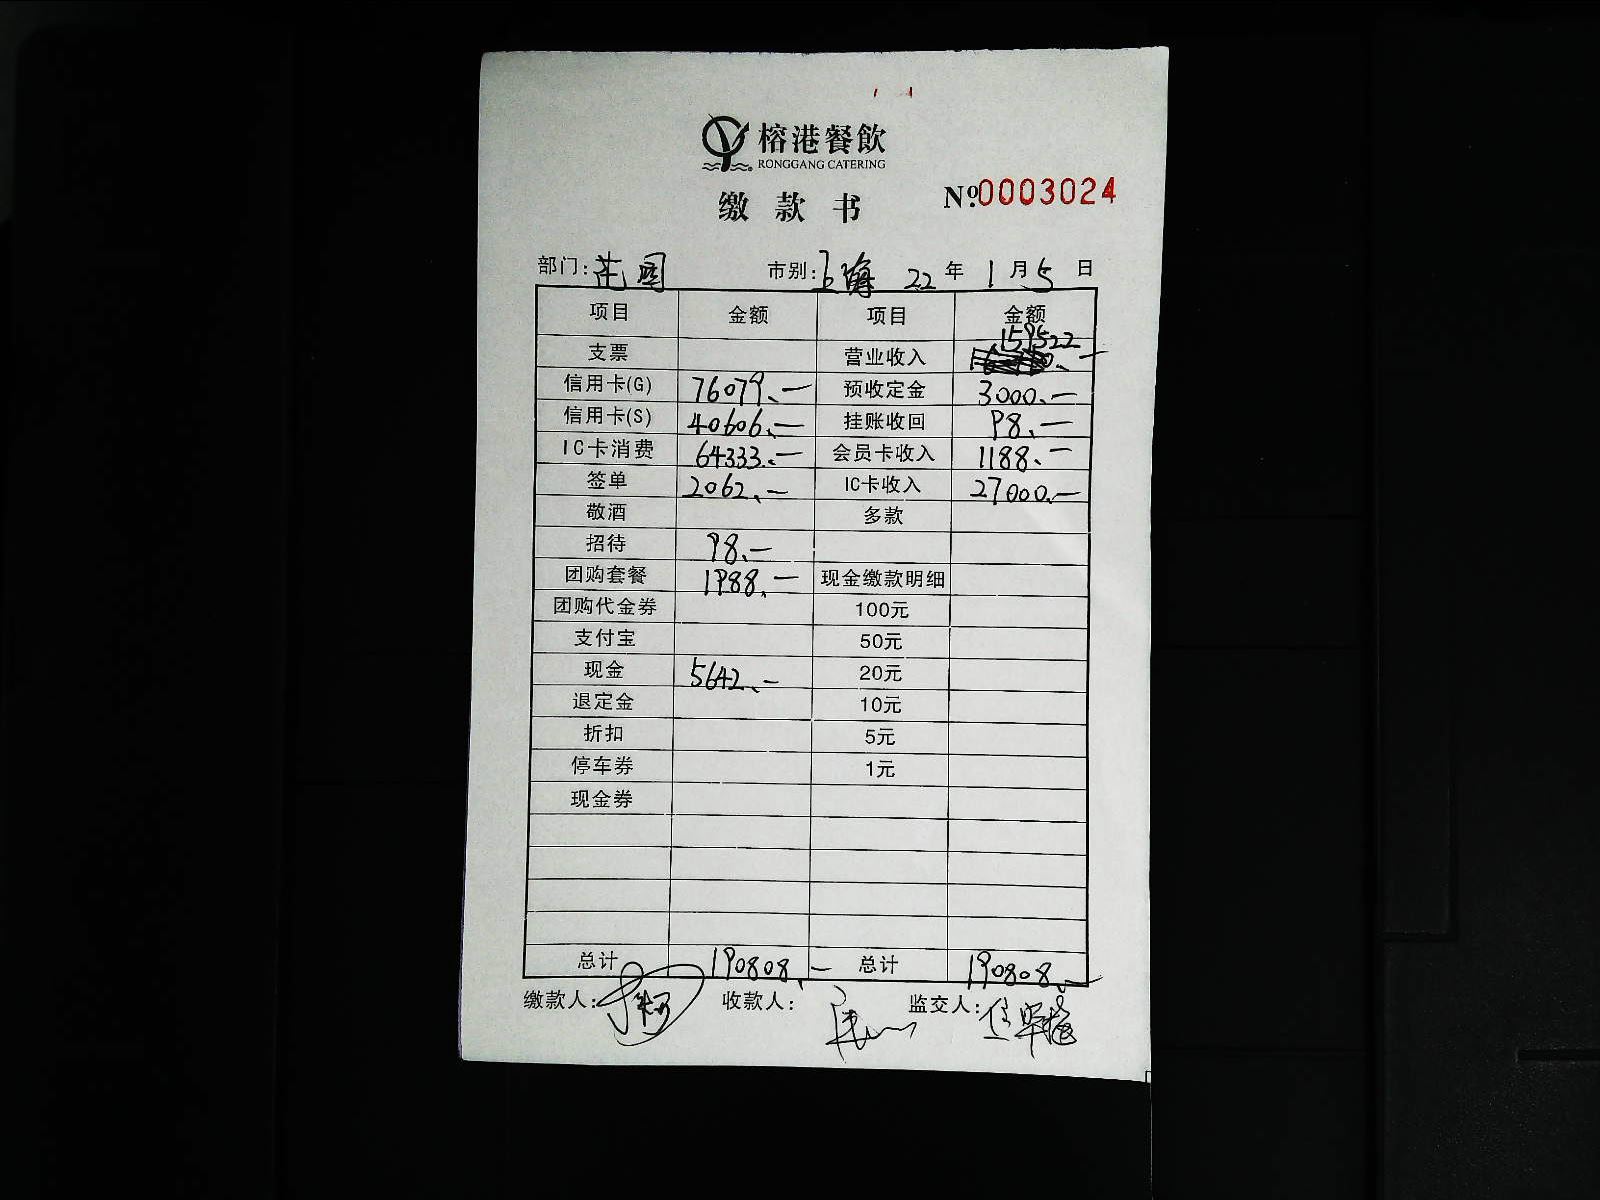 榕港餐飲
RONGGANG CATERING
缴款书
№0003024
部门:花园 市别:上海 22年1月5日
项目 金额 项目 金额
支票 营业收入 159522.—
信用卡(G) 76079.— 预收定金 3000.—
信用卡(S) 40606.— 挂账收回 98.—
IC卡消费 64333.— 会员卡收入 1188.—
签单 2062.— IC卡收入 27000.—
敬酒 多款
招待 98.—
团购套餐 1988.— 现金缴款明细
团购代金券 100元
支付宝 50元
现金 5642.— 20元
退定金 10元
折扣 5元
停车券 1元
现金券
总计 190808.— 总计 190808.—
缴款人: 收款人: 监交人: